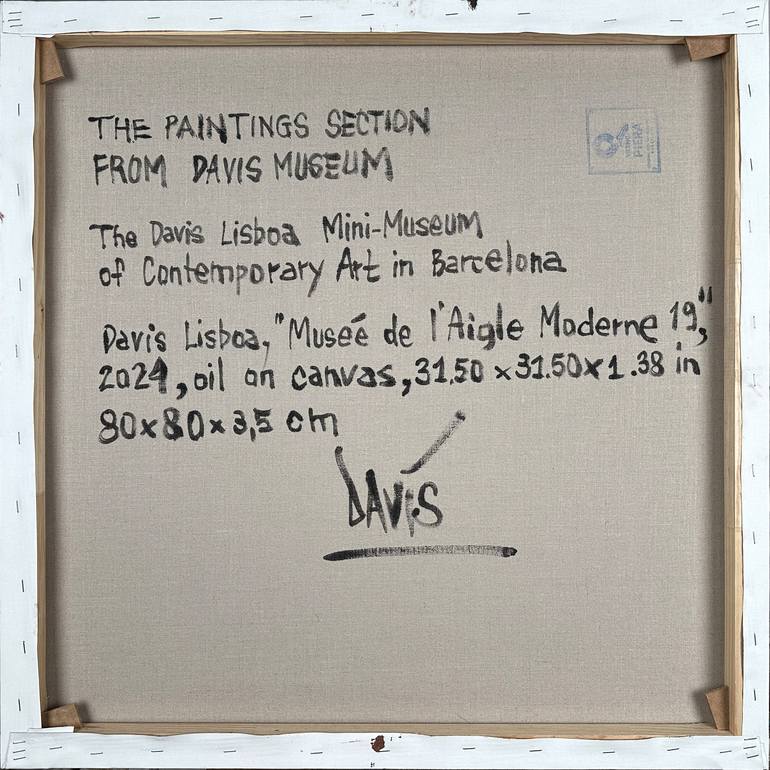 THE PAINTINGS SECTION
FROM DAVIS MUSEUM
The Davis Lisboa Mini-Museum
of Contemporary Art in Barcelona
Davis Lisboa, "Museé de l'Aigle Moderne 19",
2024, oil on canvas, 31.50 x 31.50 x 1.38 in
80 x 80 x 3,5 cm
DAVIS
PIERA